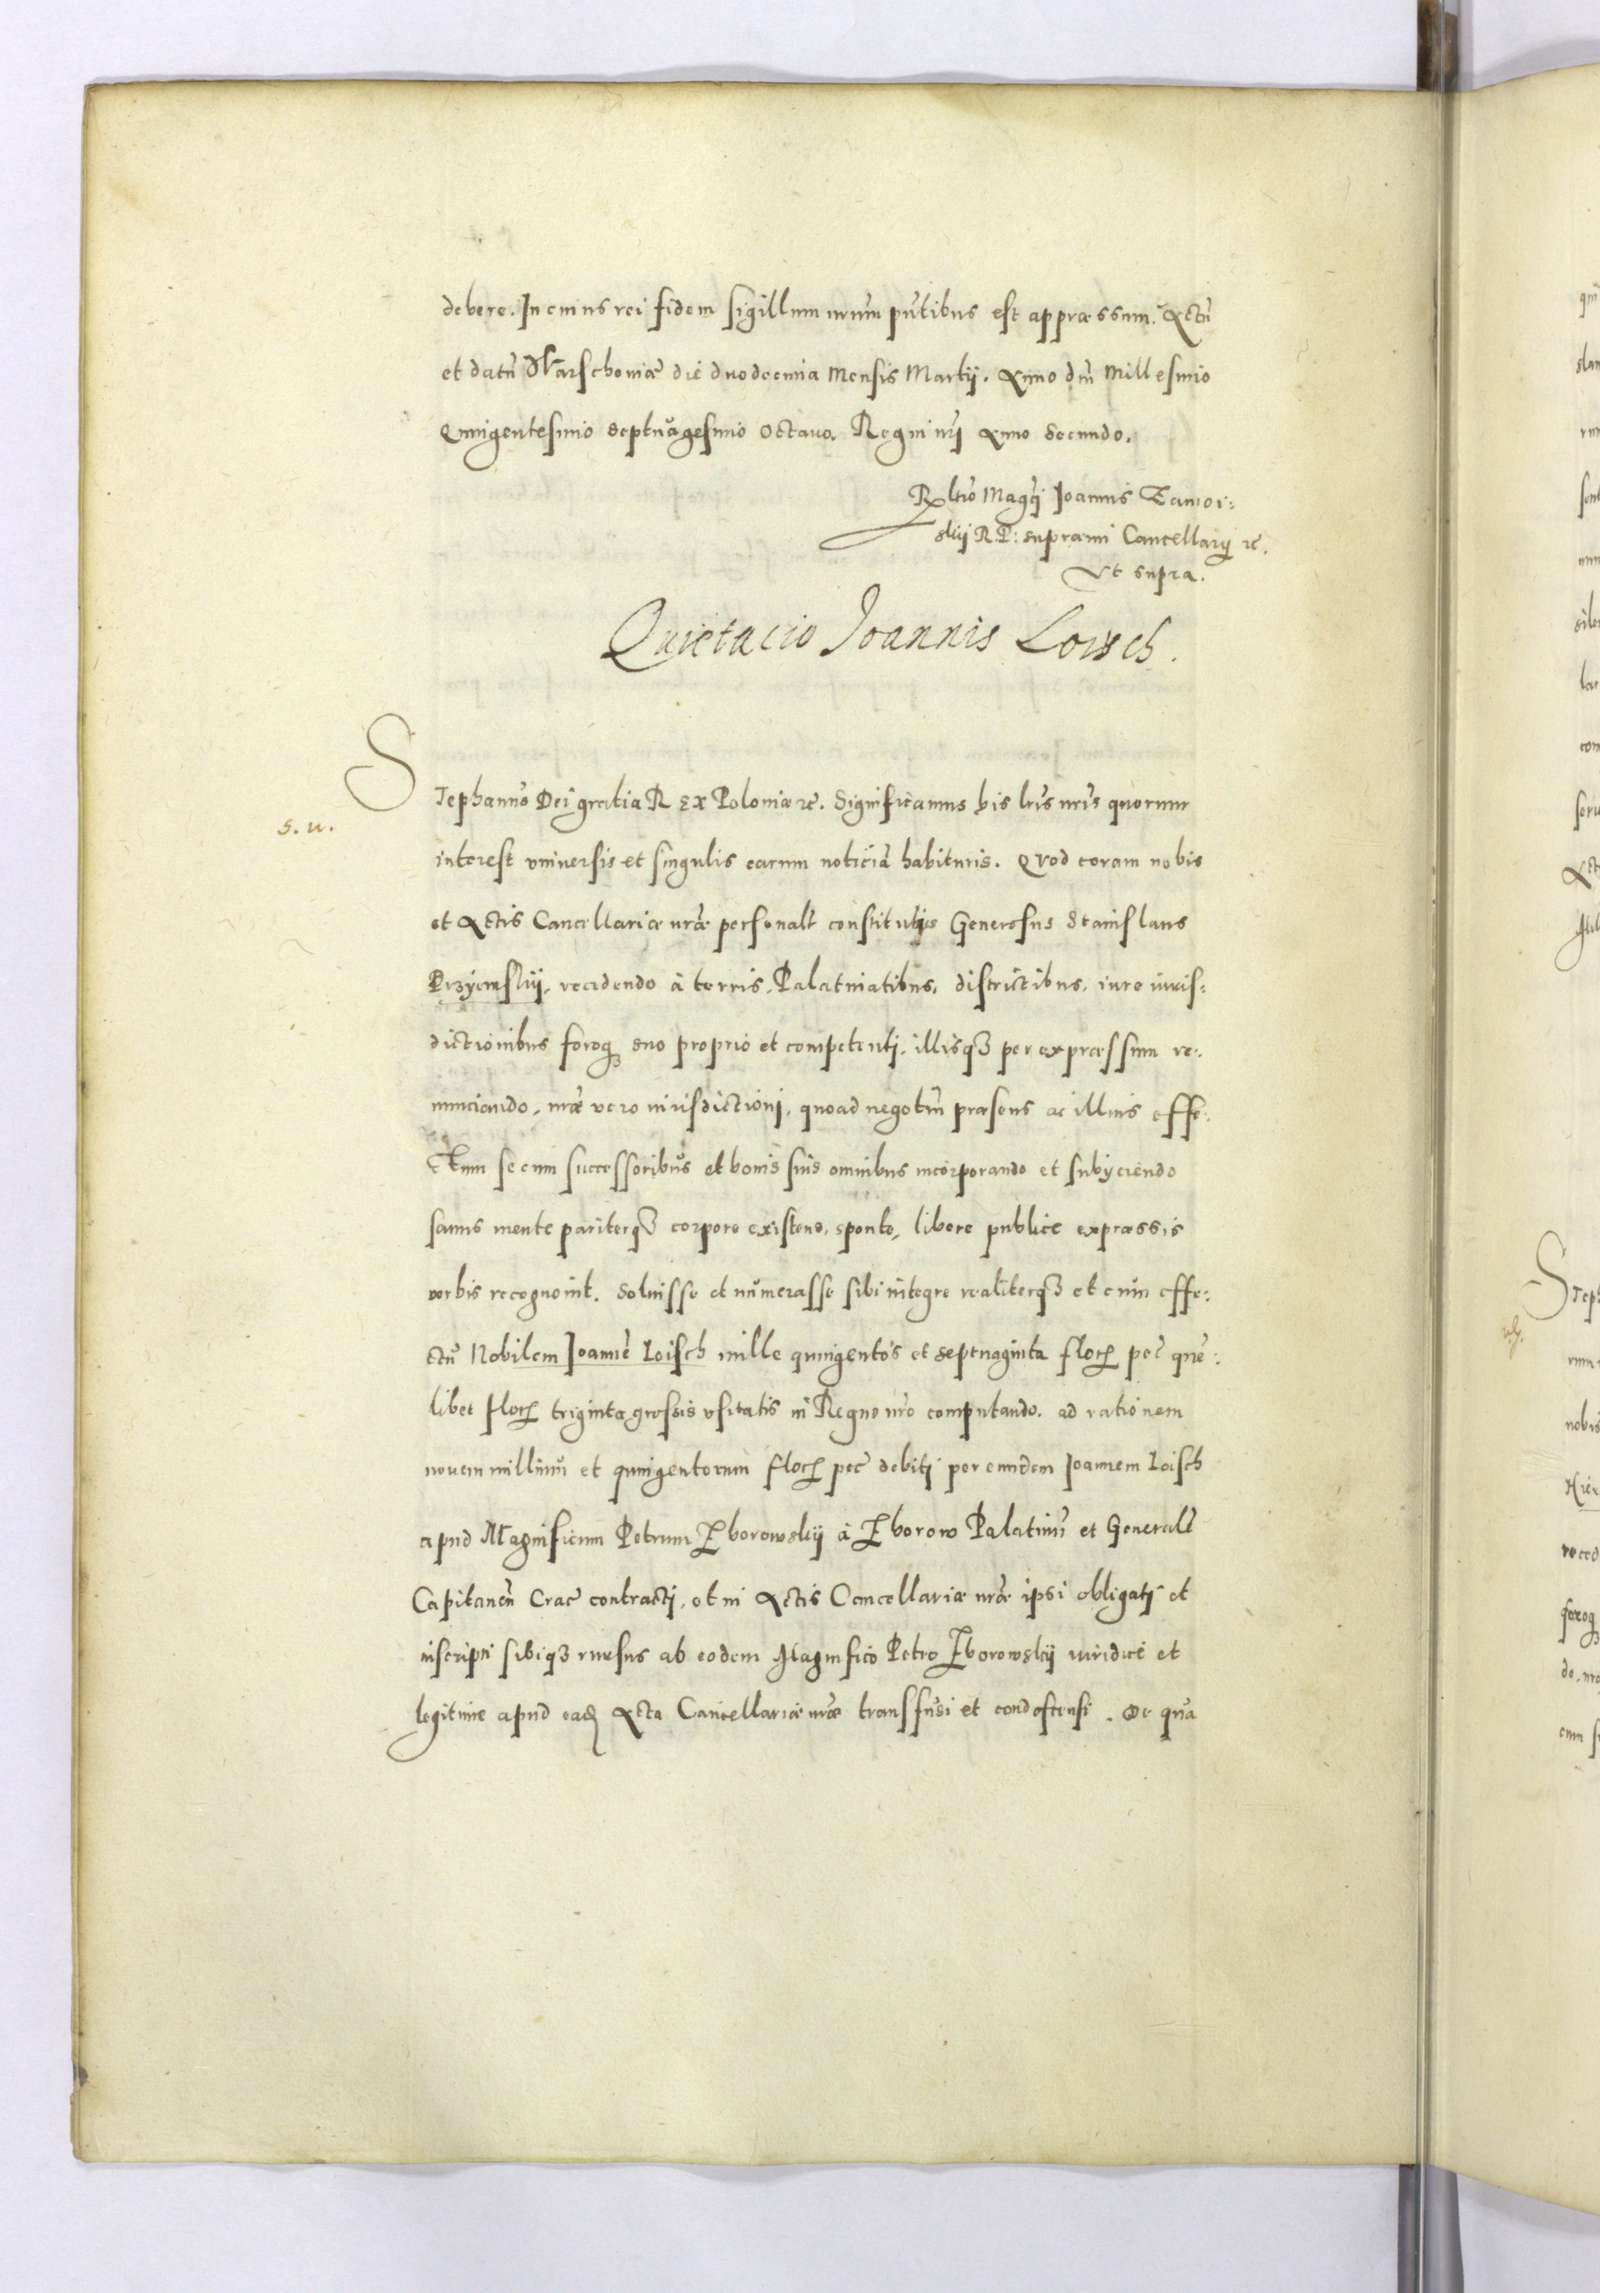 debere. In cuius rei fidem sigillum nrum pntibus est appraessum. Actu
et datu Warschoniae die duodecima Mensis Martij. Anno dni Millesimo
Quingentesimo septuagesimo Octauo. Regni nri Anno Secundo.
Rltio Magci Joannis Zamoi:
skij R.P: supraemi Cancellarij rc.
Vt supra.
Quietacio Joannis Loisch.
STephanus Dei gratia REx Poloniae rc. Significamus his lris nris quorum
s. u.
interest vniuersis et singulis earum noticia habituris. Quod coram nobis
et Actis Cancellariae nrae personalr constitutus Generosus Stanislaus
Przyiemskij, recedendo à terris, Palatinatibus, districtibus, iure iuris:
dictionibus foroq suo proprio et competenti, illisq3 per expraessum re:
nunciando, nrae vero iurisdictioni, quoad negotiu praesens ac illius effe:
ctum se cum successoribus et bonis suis omnibus incorporando et subijciendo
sanus mente pariterq3 corpore existens, sponte, libere publice expraessis
verbis recognouit. Soluisse et numerasse sibi integre realiterq3 et cum effe:
ctu Nobilem Joanne Loisch mille quingentos et septuaginta flor pec que:
libet flor triginta grossis vsitatis in Regno nro computando. ad rationem
nouem milliuu et quingentorum flor pec debiti per eundem Joannem Loisch
apud Magnificum Petrum Zborowskij à Zborow Palatinu et Generale
Capitaneu Crac contracti, et in Actis Cancellariae nrae ipsi obligati et
inscripti sibiq3 rursus ab eodem Magnifico Petro Zborowskij iuridice et
legitime apud ead Acta Cancellariae nrae transfusi et condescensi. De qua